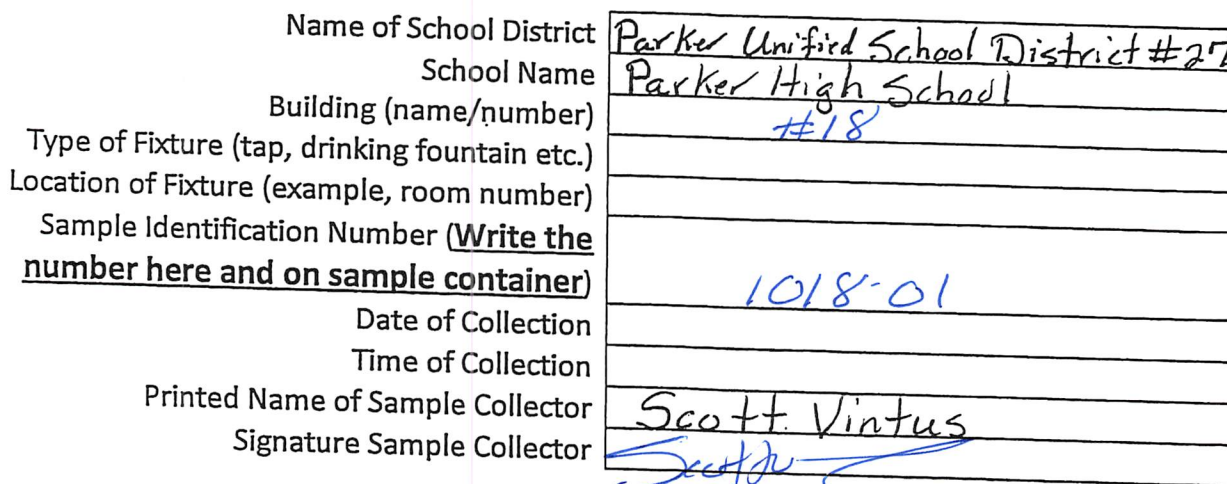 Name of School District Parker Unified School District #27
School Name Parker High School
Building (name/number) #18
Type of Fixture (tap, drinking fountain etc.)
Location of Fixture (example, room number)
Sample Identification Number (Write the
number here and on sample container) 1018-01
Date of Collection
Time of Collection
Printed Name of Sample Collector Scott Vintus
Signature Sample Collector